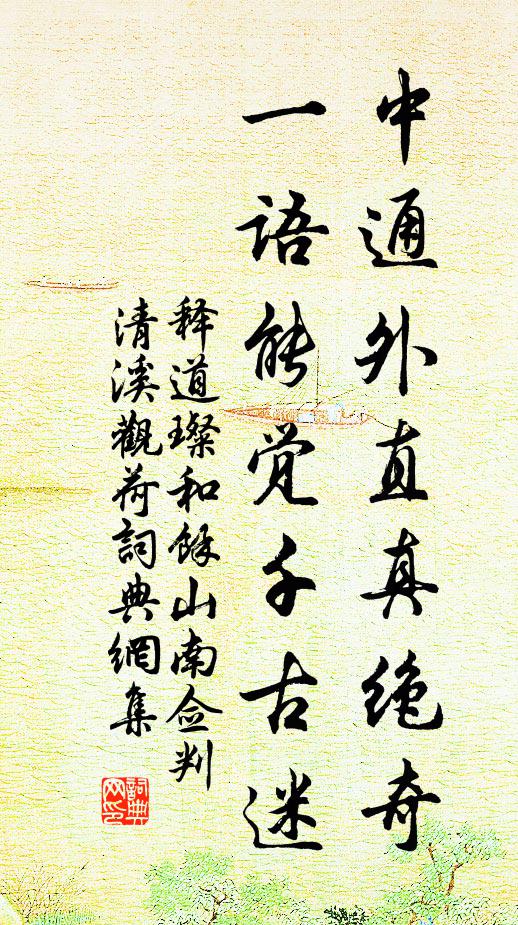 中通外直真绝奇
一语能觉千古迷
释道璨和馀山南佥判
清溪觀荷詞典網集
詞典网印